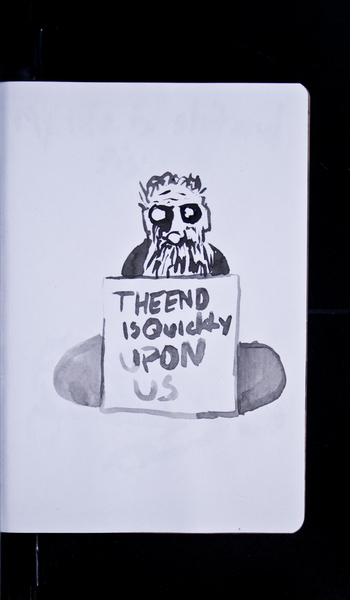 THE END
IS Quickly
UPON
US